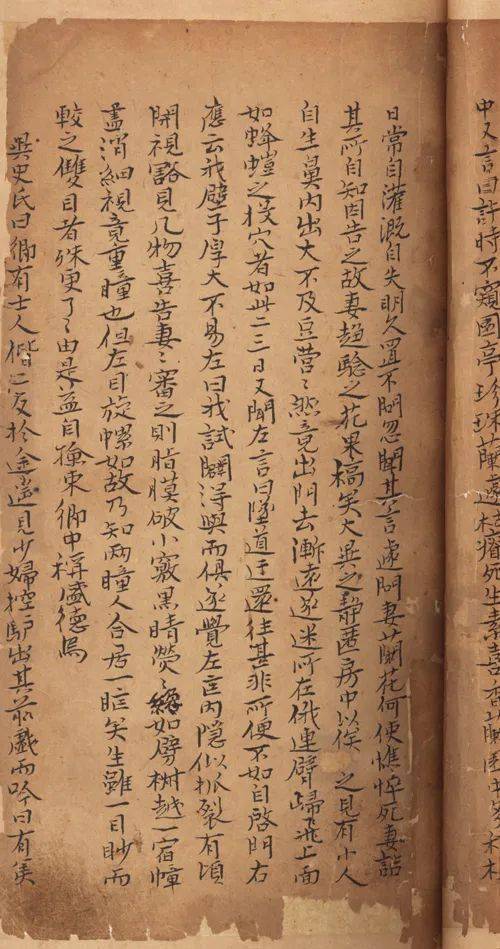 中又言曰許時不窺園亭珍珠蘭遽枯瘠死生素喜香蘭園中多木本
日常自灌溉自失明久置不問忽聞其言遽問妻蘭花何使憔悴死妻詰
其所自知因告之故妻趨驗之花果槁矣大異之靜匿房中以俟 之見有小人
自生鼻內出大不及豆營〻然竟出門去漸遠遂迷所在俄連臂歸飛上面
如蜂螘之投穴者如此二三日又聞左言曰墜道迂還往甚非所便不如自啓門右
應云我壁子厚大不易左曰我試闢得與而俱遂覺左匡內隱似抓裂有頃
開視豁見几物喜告妻〻審之則脂膜破小竅黑睛熒〻纔如劈椒越一宿幛
盡消細視竟重瞳也但左目旋螺如故乃知兩瞳人合居一眶矣生雖一目眇而
較之雙目者殊更了〻由是益自檢束鄉中稱盛德焉
異史氏曰鄉有士人偕二友於途遙見少婦控驴出其前戲而吟曰有美